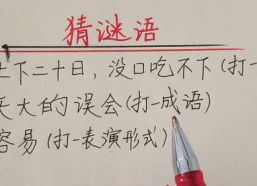 猜谜语
上下二十日，没口吃不下(打一
天大的误会(打一成语)
容易(打一表演形式)